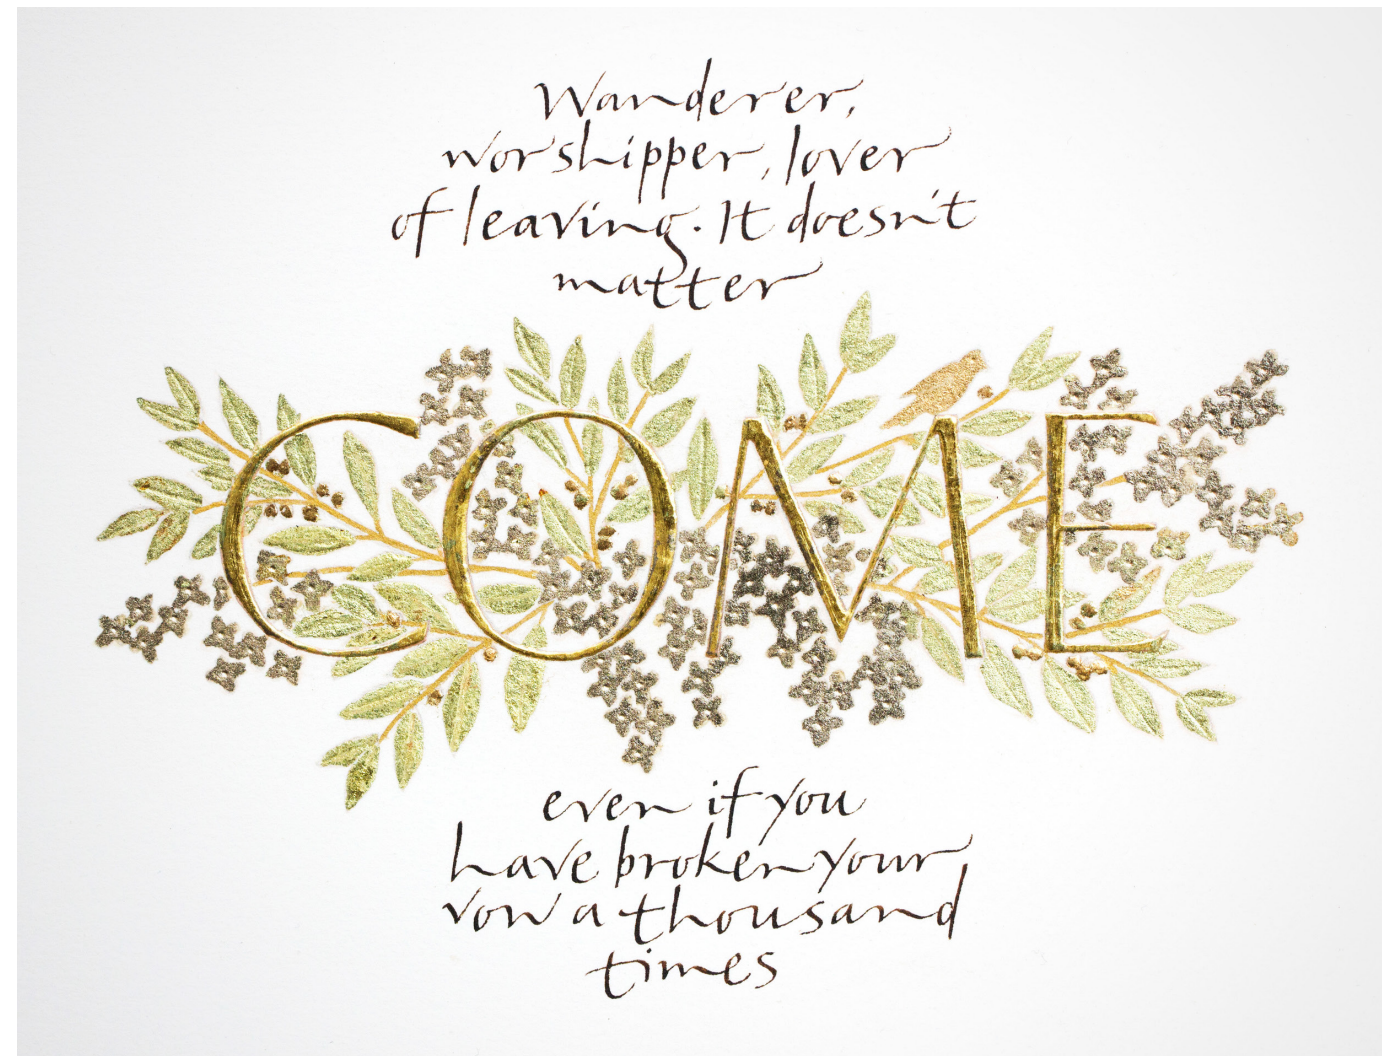 Wanderer,
worshipper, lover
of leaving. It doesn't
matter
COME
even if you
have broken your
vow a thousand
times